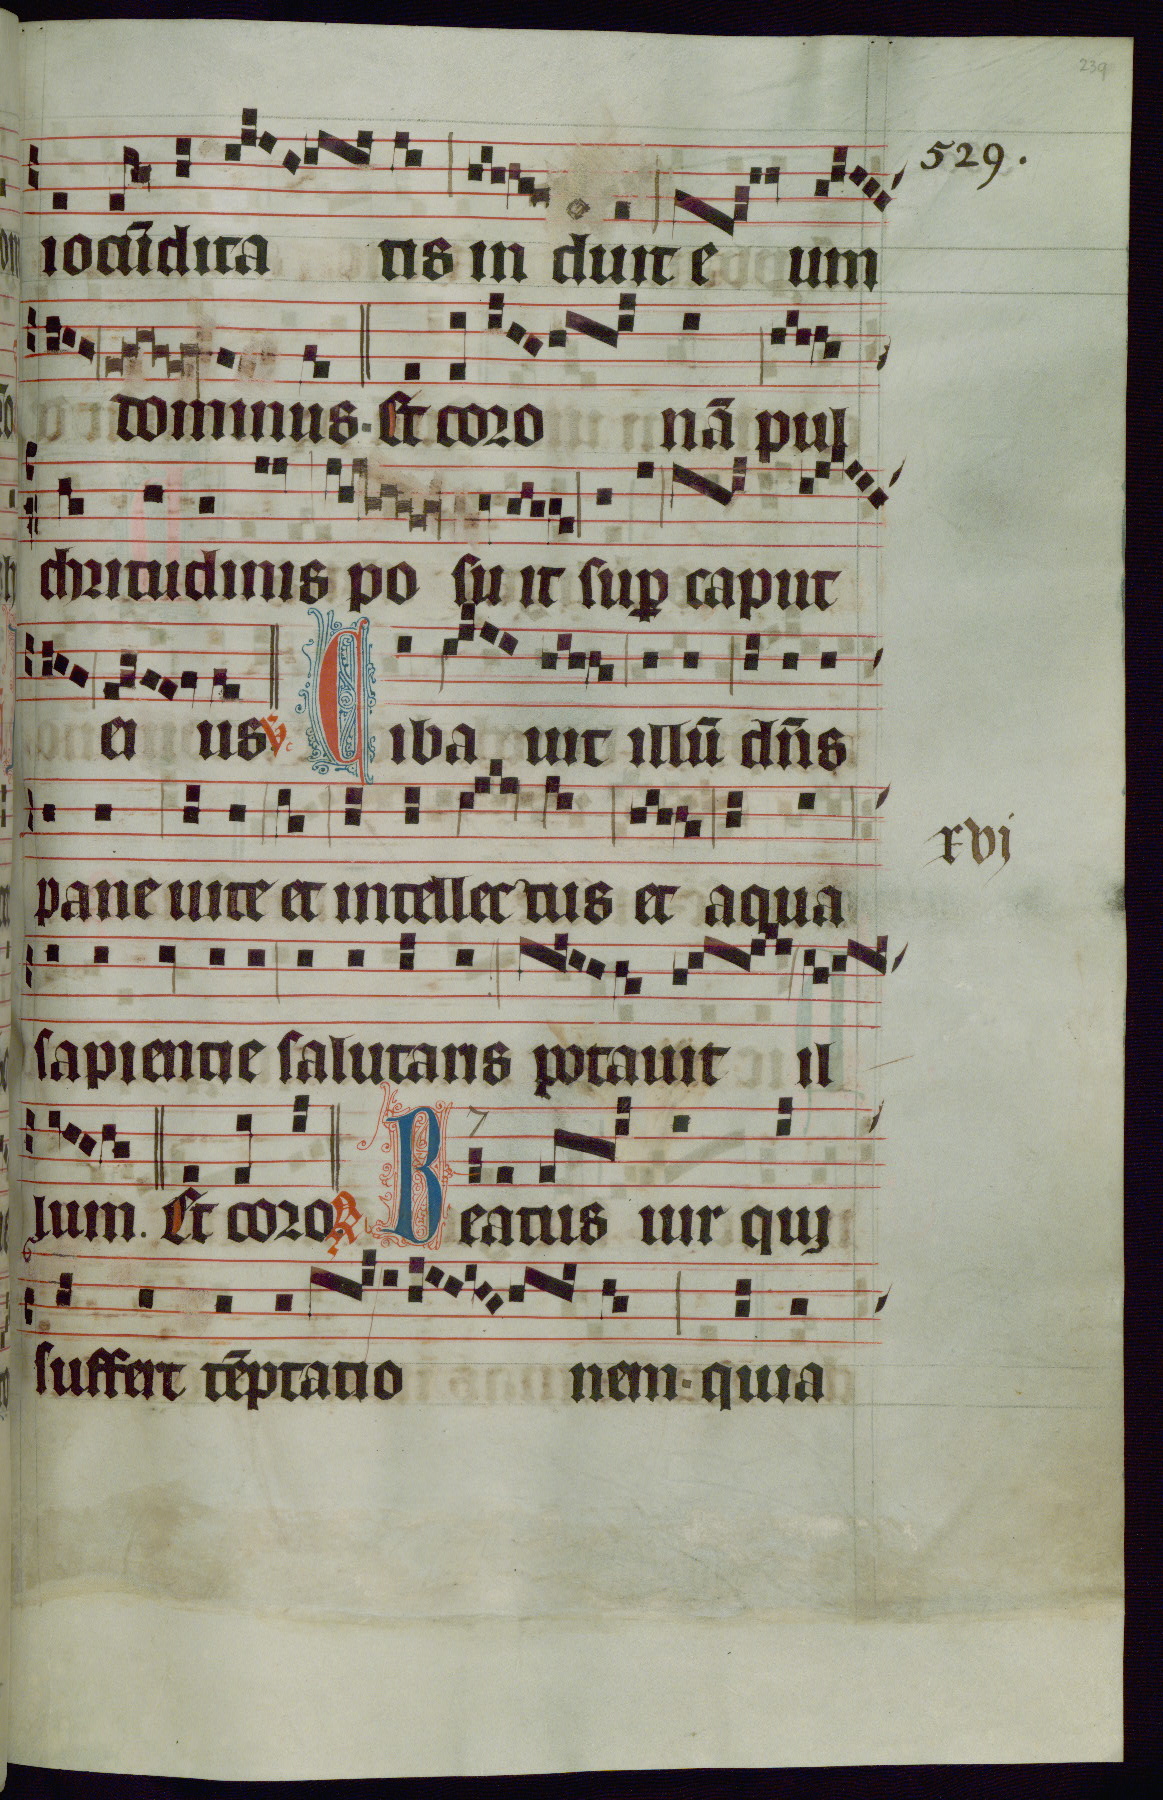 239
529.
iocūdita tis in duit e um
dominus. Et coro nā pul
chritudinis po su it sup caput
ei us V Ciba uit illū dñs
pane uite et intellectus et aqua
xvj
sapientie salutaris potauit il
lum. Et coro R Beatus uir qui
7
suffert tēptatio nem. quia